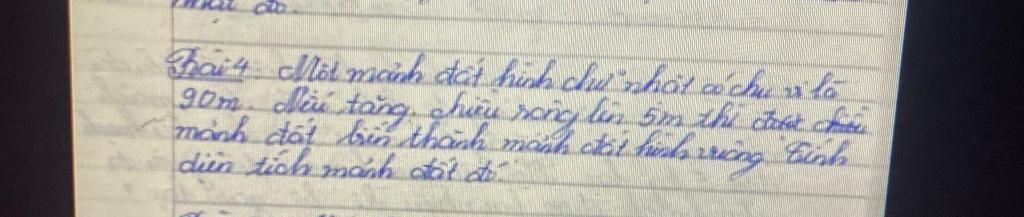 Bài 4: Một mảnh đất hình chữ nhật có chu vi là
90m. Nếu tăng chiều rộng lên 5m thì
mảnh đất biến thành mảnh đất hình vuông. Tính
diện tích mảnh đất đó.